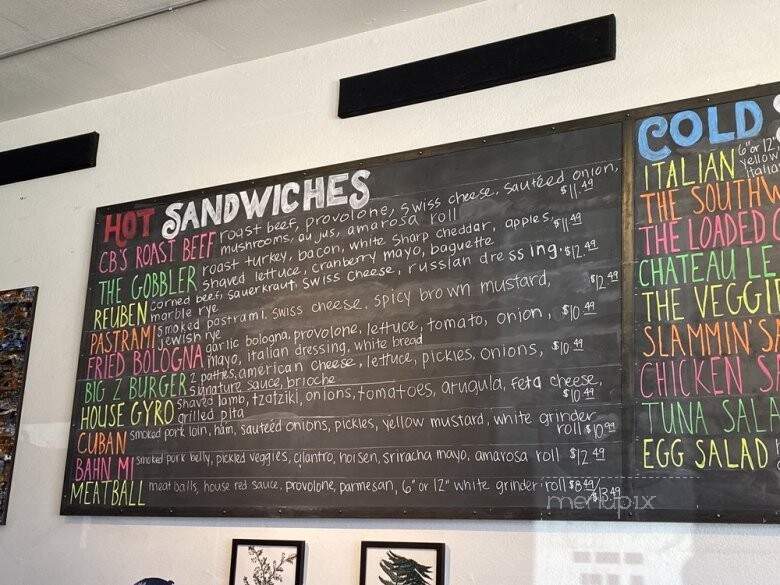 HOT SANDWICHES
CB'S ROAST BEEF roast beef, provolone, swiss cheese, sautéed onion,
mushrooms, au jus, amarosa roll $11.49
THE GOBBLER roast turkey, bacon, white sharp cheddar, apples,
shaved lettuce, cranberry mayo, baguette $11.49
REUBEN corned beef, sauerkraut, swiss cheese, russian dressing, $12.49
marble rye
PASTRAMI smoked pastrami, swiss cheese, spicy brown mustard,
jewish rye $12.49
FRIED BOLOGNA garlic bologna, provolone, lettuce, tomato, onion, $10.49
mayo, italian dressing, white bread
BIG Z BURGER 2 patties, american cheese, lettuce, pickles, onions, $10.49
signature sauce, brioche
HOUSE GYRO shaved lamb, tzatziki, onions, tomatoes, arugula, feta cheese,
grilled pita $10.49
CUBAN smoked pork loin, ham, sautéed onions, pickles, yellow mustard, white grinder
roll $10.99
BAHN MI smoked pork belly, pickled veggies, cilantro, hoisen, sriracha mayo, amarosa roll $12.49
MEATBALL meatballs, house red sauce, provolone, parmesan, 6" or 12" white grinder roll $8.49/$13.49
COLD S
ITALIAN 6" or 12"
yellow
italia
THE SOUTHW
THE LOADED C
CHATEAU LE
THE VEGGIE
SLAMMIN' SA
CHICKEN SA
TUNA SALA
EGG SALAD
menupix